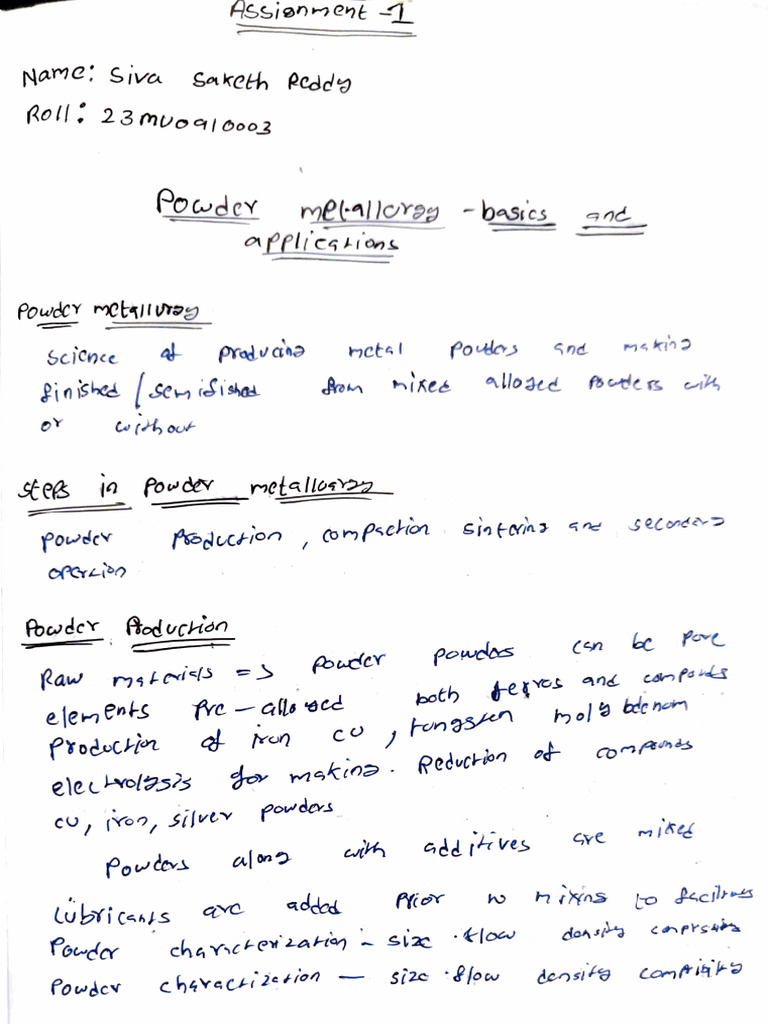 Assignment -1
Name: Siva Saketh Reddy
Roll: 23MU0910003
Powder metallurgy - basics and
applications
Powder metallurgy
Science of producing metal powders and making
finished / semifished from mixed alloyed powders with
or without
Steps in Powder metalluargy
Powder Production, compaction sintering and secondary
opertion
Powder Production
Raw materials => Powder powders can be pore
elements Pre-alloyed both ferros and compounds
Production of iron cu, tungsten molybdenom
electrolysis for making. Reduction of compounds
cu, iron, silver powders
Powders along with additives are mixed
Lubricants are added Prior to mixing to
Powder characterization - size flow density
Powder charactization - size flow density